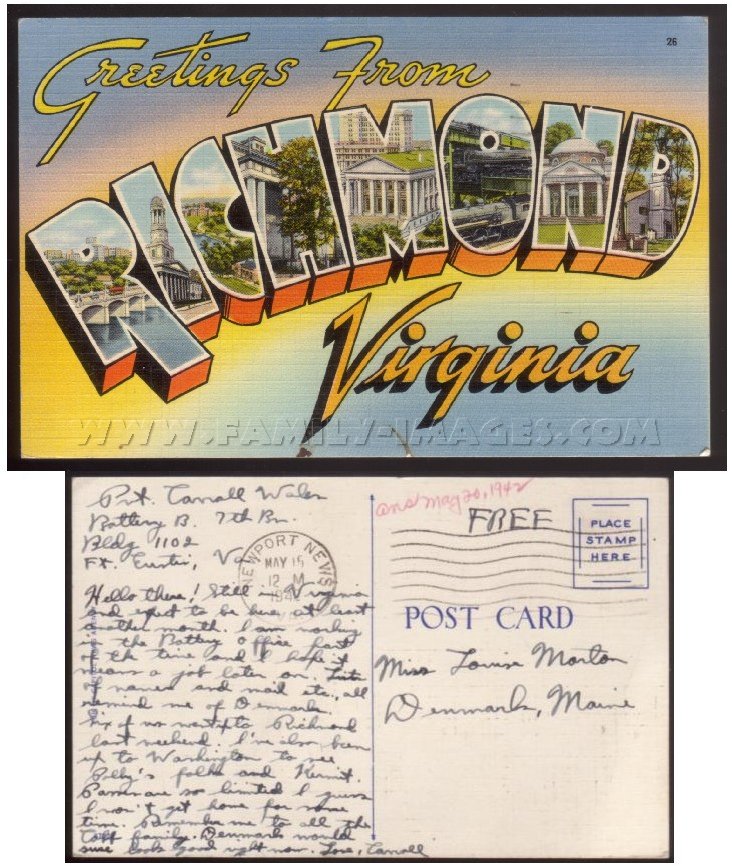 26
Greetings From
RICHMOND
Virginia
WWW.FAMILY-IMAGES.COM
Pvt. Carroll Wales
Battery B. 7th Bn.
Bldg 1102
Ft. Eustis, Va
NEWPORT NEWS
MAY 15
12 M
194
Hello there! Still in Virginia
and expect to be here at least
another month. I am working
in the Battery Office part
of the time and I hope it
means a job later on. Lists
of names and mail etc., all
remind me of Denmark.
Six of us went to Richmond
last weekend. I've also been
up to Washington to see
Polly's folks and Kermit.
Passes are so limited I guess
I won't get home for some
time. Remember me to all the
family. Denmark would
sure look good right now. Love, Carroll
ans May 20, 1942
FREE
PLACE
STAMP
HERE
POST CARD
Miss Louise Morton
Denmark, Maine